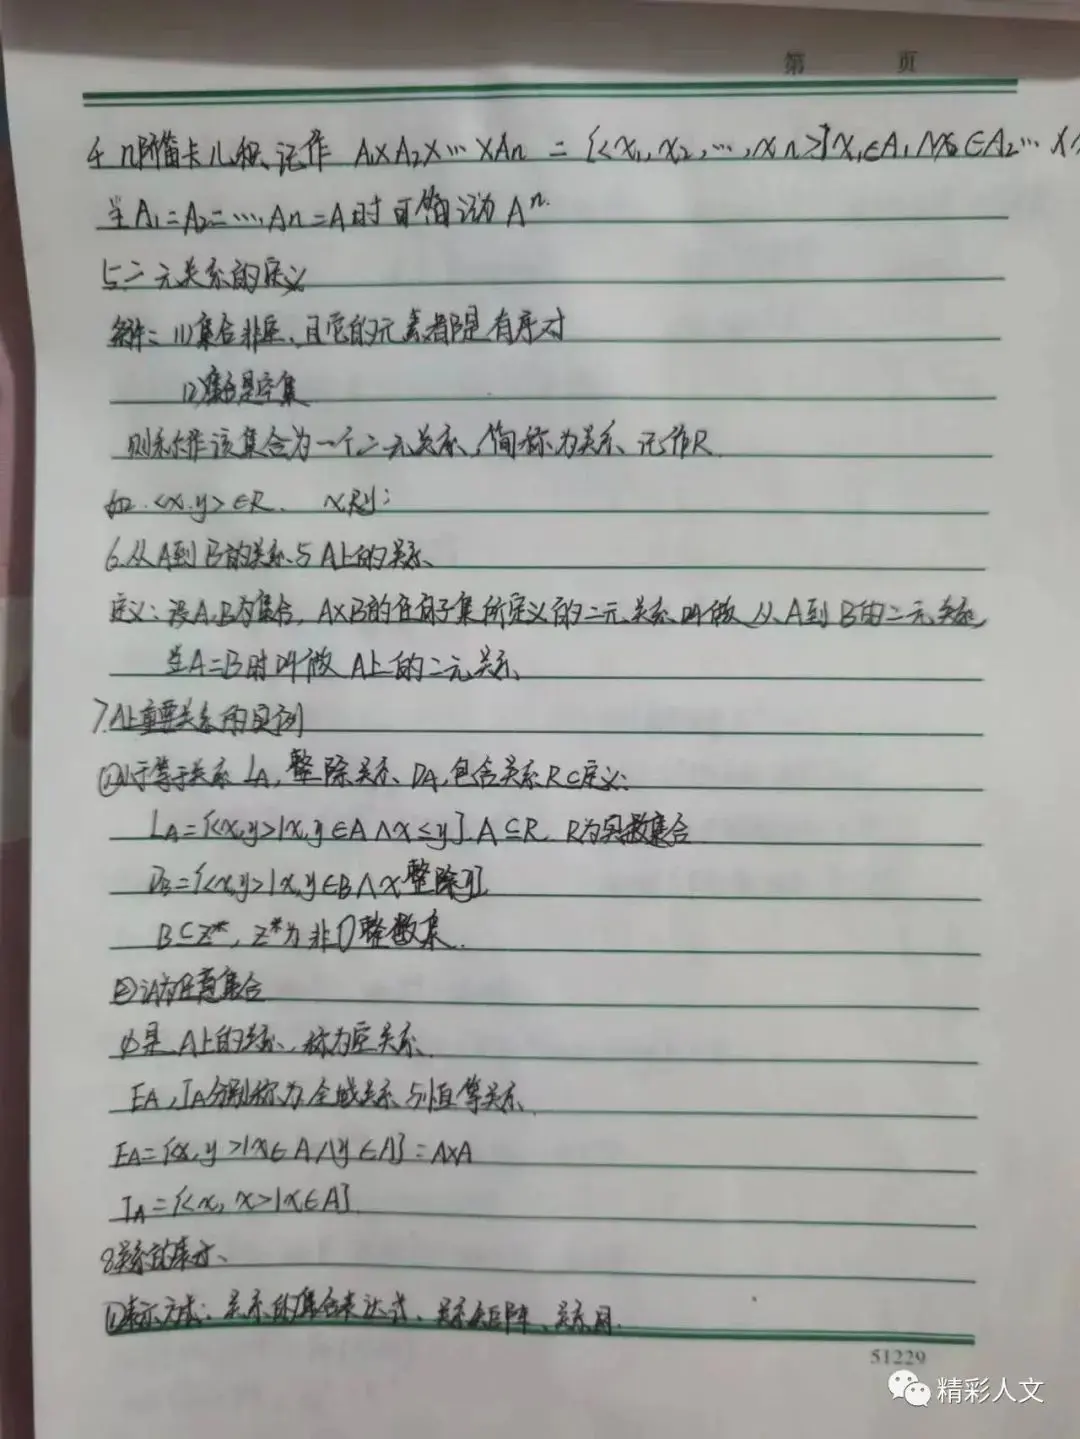 第 页
4. n阶笛卡儿积、记作 A₁×A₂×…×An = {<x₁, x₂, …, xn>|x₁∈A₁∧x₂∈A₂…
当A₁=A₂=…,An=A时可简记为 Aⁿ.
5.二元关系的定义
条件: (1)集合非空、且它的元素都是有序对
(2)集合是空集
则称作该集合为一个二元关系,简称为关系、记作R
如.<x.y>∈R. xRy;
6.从A到B的关系与A上的关系、
定义:设A.B为集合, A×B的任何子集所定义的二元关系叫做从A到B的二元关系,
当A=B时叫做 A上的二元关系、
7.A上重要关系的实例
①小于等于关系 LA, 整除关系、DA,包含关系R⊆定义:
LA={<x,y>|x,y∈A∧x≤y}.A⊆R. R为实数集合
DB={<x,y>|x,y∈B∧x整除y}
B⊆Z*, Z*为非0整数集.
②设A为任意集合
∅是A上的关系、称为空关系、
EA,IA分别称为全域关系与恒等关系、
EA={<x,y>|x∈A∧y∈A}=A×A
IA={<x,x>|x∈A}
8关系的表示、
①表示方法:关系的集合表达式、关系矩阵、关系图.
51229
精彩人文